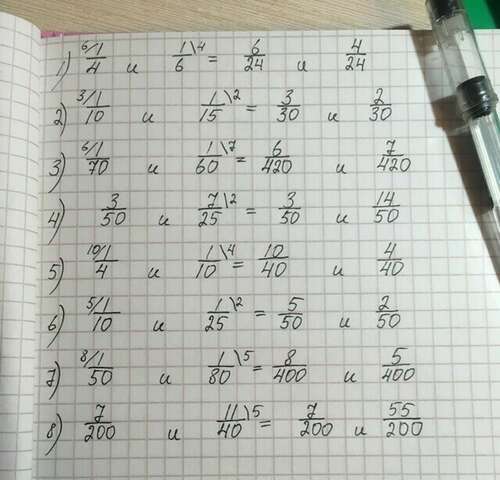 1) 6/ 1/4 и 1/6 \4 = 6/24 и 4/24
2) 3/ 1/10 и 1/15 \2 = 3/30 и 2/30
3) 6/ 1/70 и 1/60 \7 = 6/420 и 7/420
4) 3/50 и 7/25 \2 = 3/50 и 14/50
5) 10/ 1/4 и 1/10 \4 = 10/40 и 4/40
6) 5/ 1/10 и 1/25 \2 = 5/50 и 2/50
7) 8/ 1/50 и 1/80 \5 = 8/400 и 5/400
8) 7/200 и 11/40 \5 = 7/200 и 55/200